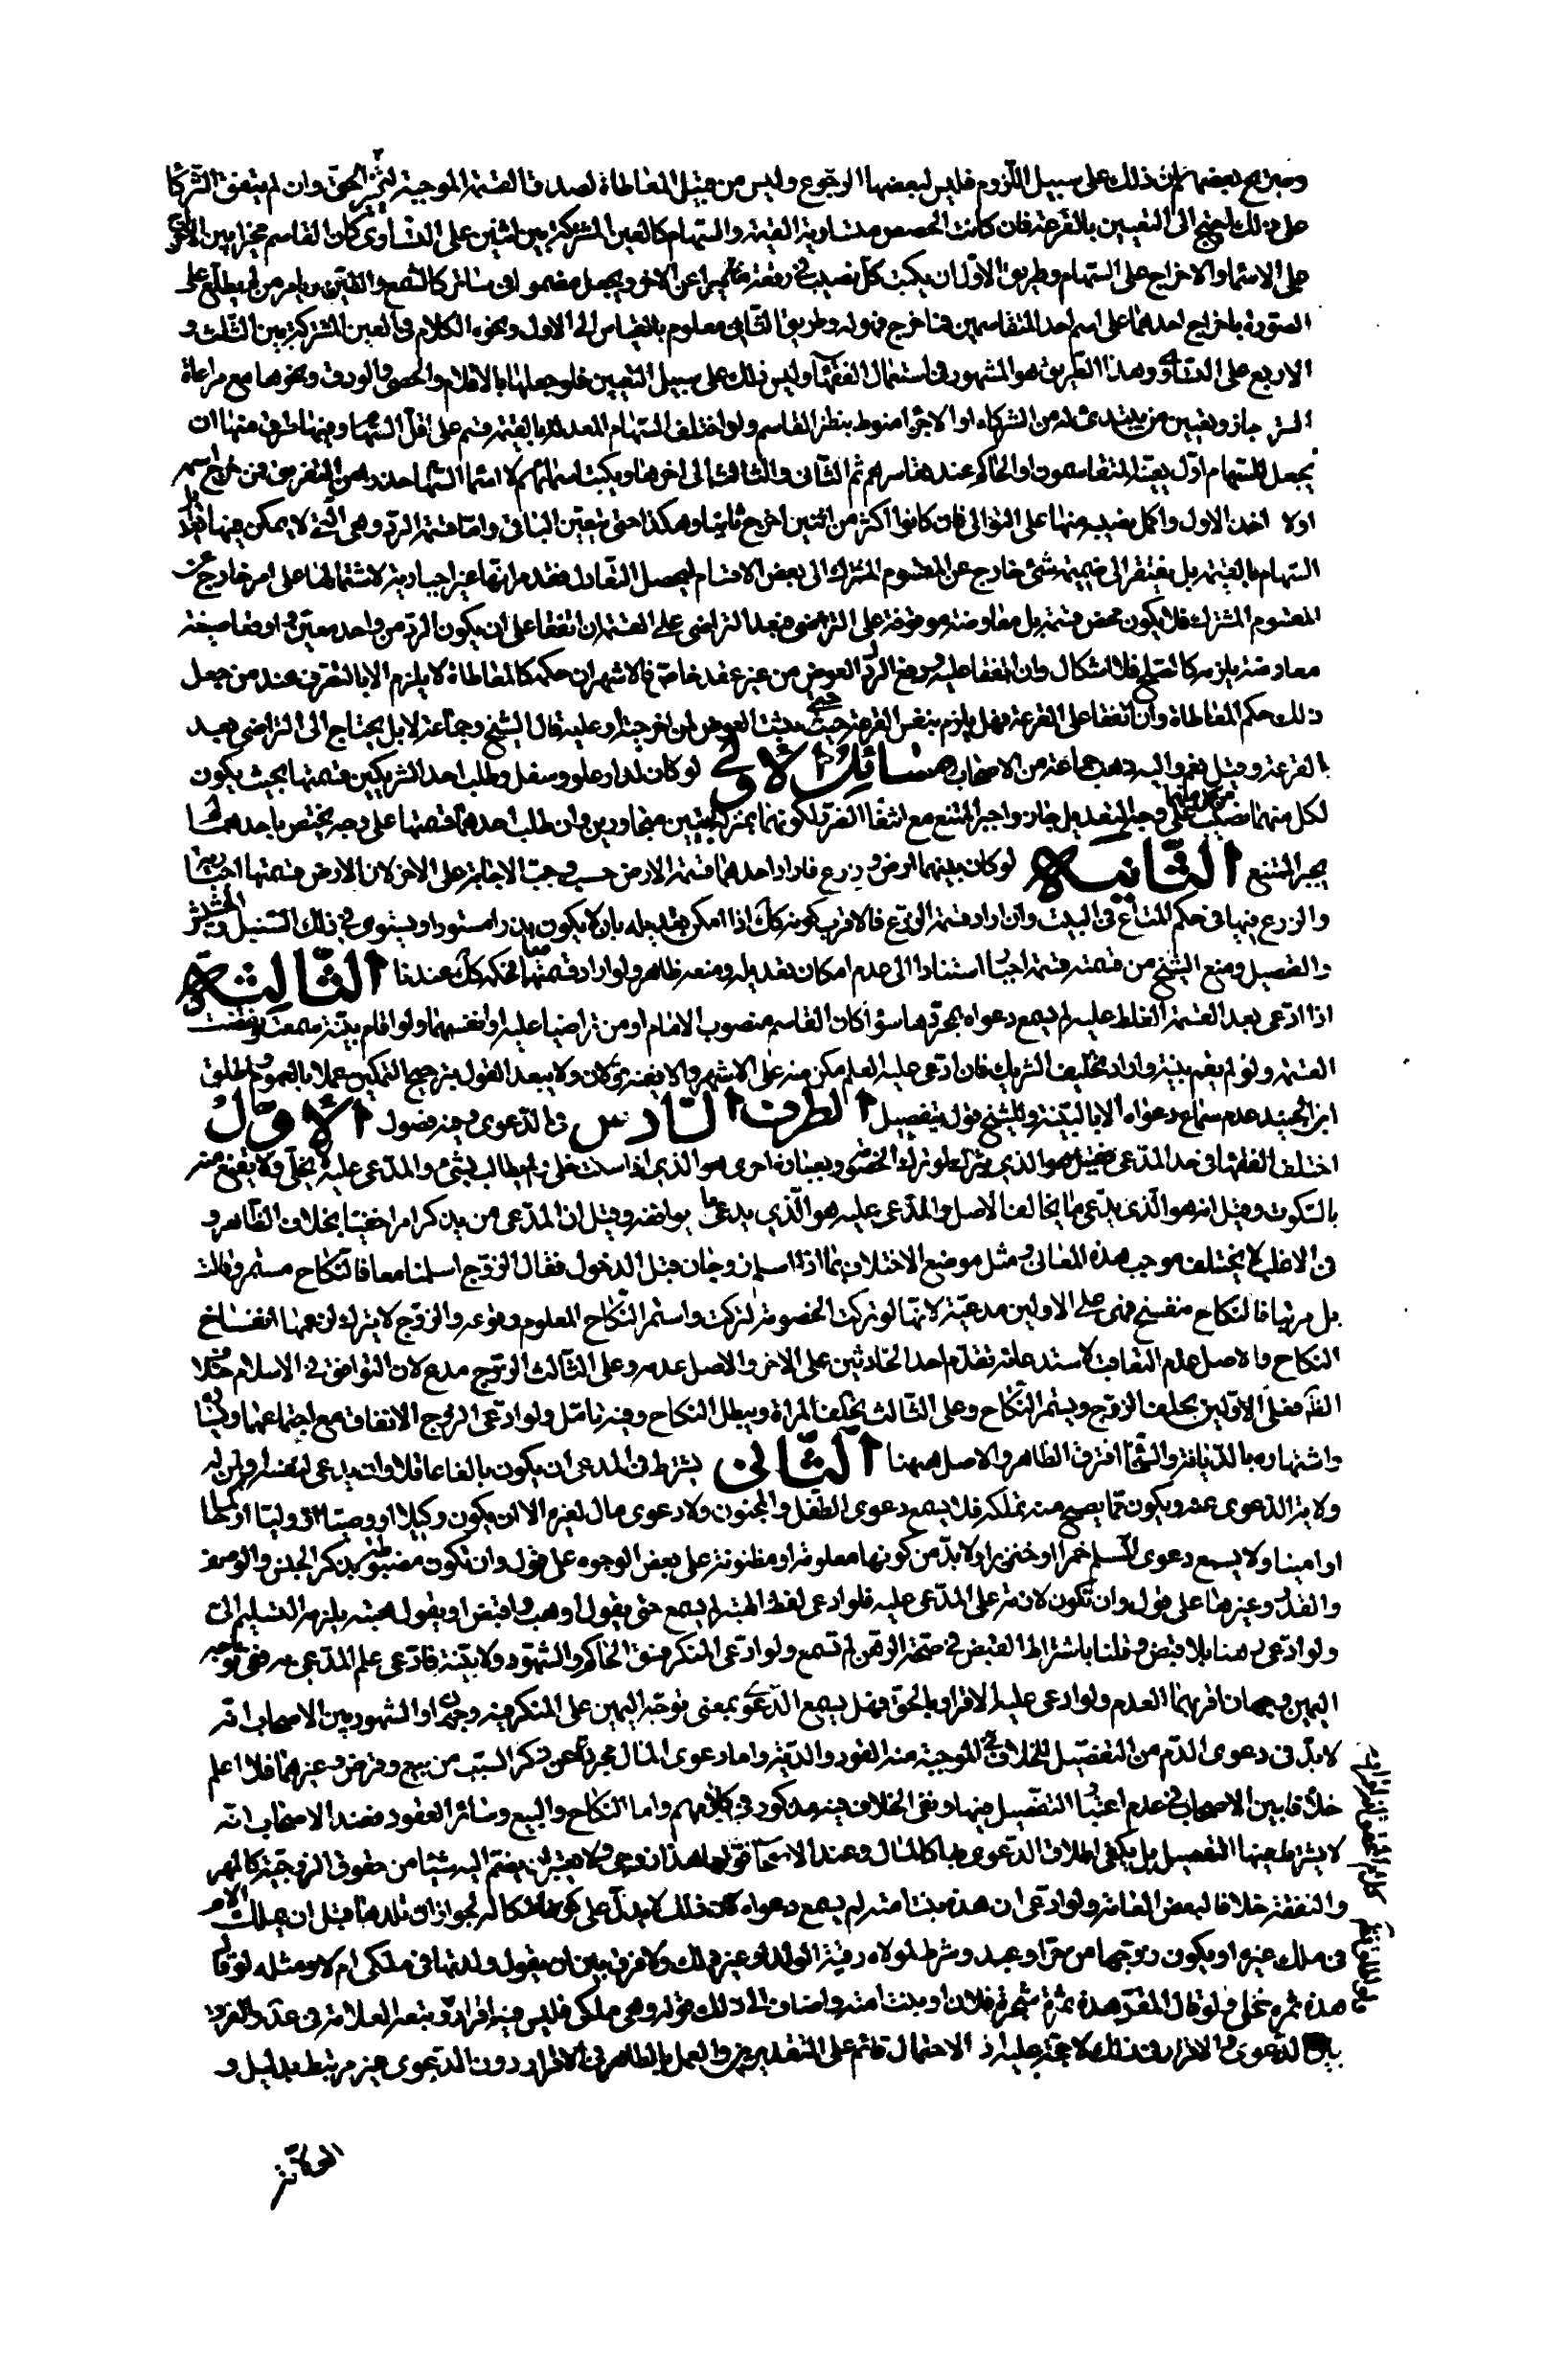 وميز مع بعضها كان ذلك على سبيل اللزوم فليس لبعضها الرجوع وليس من قبيل المعاطاة لصدق القسمة الموجبة لتميز الحق وان لم يتفق الشركا
على ذلك احتيج الى التعيين بالقرعة فان كانت الحصص متساوية القيمة والسهام كالعين المشتركة بين اثنين على التساوى كان القاسم مخيرا بين الاخراج
على الاسماء والاخراج على السهام وطريق الاول ان يكتب كل نصيب في رقعة عن الاخر ويجعل مضمونا في ساتر كالشمع والطين ويامر من لم يطلع على
الصورة باخراج احدهما على اسم احد المتقاسمين فما خرج فهو له وطريق الثاني معلوم بالقياس الى الاول ونحوه الكلام في العين المشتركة بين الثلث و
الاربع على التساوى وهذا الطريق هو المشهور في استعمال الفقهاء وليس ذلك على سبيل التعيين فلو جعلها بالاقلام والحصى والورق ونحوها مع مراعاة
الستر جاز وتعيين من يبتدئ له من الشركاء او الاجزاء منوط بنظر القاسم ولو اختلف السهام المعدلة بالقيمة قسم على اقل السهام وفيها طرق منها ان
يجعل للسهام اول يعينه المتقاسمون او الحاكم عند تعاسرهم ثم الثانى والثالث الى اخرها ويكتب اسمائهم لا اسماء السهام حذرا من التفريق فمن خرج اسمه
اولا اخذ الاول واكمل نصيبه منها على التوالى فان كانوا اكثر من اثنين اخرج ثانيا وهكذا حتى يتعين الباقى واما قسمة الرد وهى التى لا يمكن فيها تعديل
السهام بالقيمة بل يفتقر الى ضميمة شئ خارج عن المقسوم المشترك الى بعض الاقسام ليحصل التعادل فقد مر انها غير اجبارية لاشتمالها على امر خارج عن
المقسوم المشترك فلا يكون محض قسمة بل معاوضة موقوفة على التراضى فبعد التراضى على القسمة ان اتفقا على ان يكون الرد من واحد معين واوقعا صيغة
معاوضة يلزمه كالصلح فلا اشكال وان اتفقا عليه ودفع الراد العوض من غير عقد خاص فالاشهر ان حكمه كالمعاطاة لا يلزم الا بالتصرف عند من جعل
ذلك حكم المعاطاة وان اتفقا على القرعة فهل يلزم بنفس القرعة حيث يثبت العوض لمن اخرجته او عليه قال الشيخ وجماعة لا بل يحتاج الى التراضى بعد
القرعة وقيل نعم واليه ذهب جماعة من الاصحاب مسائل الاولى لو كان لدار علو وسفل وطلب احد الشريكين قسمتها بحيث يكون
لكل منهما نصيب على وجه التعديل جاز واجبر الممتنع مع انتفاء الضرر لكونهما بمنزلة بيتين متجاورين وان طلب احدهما قسمتها على وجه يختص باحدهما لم
يجبر الممتنع الثانية لو كان بينهما ارض وزرع فاراد احدهما قسمة الارض حسب وجبت الاجابة على الاخر لان الارض قسمتها اجبارية
والزرع فيها في حكم المتاع في البيت وان اراد قسمة الزرع فالاقرب كونه كك اذا امكن تعديله بان لا يكون بذرا مستورا ويستوى في ذلك السنبل والحشيش
والفصيل ومنع الشيخ من قسمته قسمة اجبارا استنادا الى عدم امكان تعديله ومنعه ظاهر ولو اراد قسمتهما فحكمه كك عندنا الثالثة
اذا ادعى بعد القسمة الغلط عليه لم يسمع دعواه بمجردها سواء كان القاسم منصوب الامام او من تراضيا عليه او انفسهما ولو اقام بينة سمعت ونقضت
القسمة ولو لم يقم بينة واراد تحليف الشريك فان ادعى عليه العلم مكن منه على الاشهر والا ففيه قولان ولا يبعد القول بترجيح التمكين عملا بالعموم واطلق
ابن الجنيد عدم سماع دعواه الا بالبينة وللشيخ قول بتفصيل الطرف السادس في الدعوى وفيه فصول الاول
اختلف الفقهاء فى حد المدعى فقيل هو الذى يترك لو ترك الخصومة وبعبارة اخرى هو الذى اذا سكت خلى ولم يطالب بشئ والمدعى عليه لا يخلى ولا يقنع منه
بالسكوت وقيل انه هو الذى يدعى ما يخالف الاصل والمدعى عليه هو الذى يدعى ما يوافقه وقيل ان المدعى من يذكر امرا خفيا بخلاف الظاهر و
فى الاغلب لا يختلف موجب هذه المعانى ومثل موضع الاختلاف بما اذا اسلم زوجان قبل الدخول فقال الزوج اسلمنا معا فالنكاح مستمر وقالت
بل مرتبا فالنكاح منفسخ فهى على الاولين مدعية لانها لو تركت الخصومة لتركت واستمر النكاح المعلوم وقوعه والزوج لا يترك لو زعمها انفساخ
النكاح والاصل عدم التعاقب لاستدعائه تقدم احد الحادثين على الاخر والاصل عدمه وعلى الثالث الزوج مدع لان التوافق في الاسلام خلاف
الظاهر فعلى الاولين يحلف الزوج ويستمر النكاح وعلى الثالث تحلف المراة ويبطل النكاح وفيه تامل ولو ادعى الزوج الانفاق مع اجتماعهما ويساره
واشتهاره بالديانة والسخاء افترق الظاهر والاصل ههنا الثانى يشترط فى المدعى ان يكون بالغا عاقلا وان يدعى لنفسه او لمن له
ولاية الدعوى عنه ويكون مما يصح منه تملكه فلا يسمع دعوى الطفل والمجنون ولا دعوى مال لغيره الا ان يكون وكيلا او وصيا او وليا او حاكما
او امينا ولا يسمع دعوى المسلم خمرا او خنزيرا ولا بد من كونها معلومة او مظنونة على بعض الوجوه على قول وان تكون مضبوطة بذكر الجنس والوصف
والقدر وغيرها على قول وان تكون لازمة على المدعى عليه فلو ادعى لفظ الهبة لم يسمع حتى يقول وهب واقبض او يقول هبة يلزمه التسليم الى
ولو ادعى رهنا بلا قبض وقلنا باشتراط القبض في صحة الرهن لم تسمع ولو ادعى المنكر فسق الحاكم والشهود ولا بينة فادعى علم المدعى به ففى توجه
اليمين وجهان اقربهما العدم ولو ادعى عليه الاقرار بالحق فهل يسمع الدعوى بمعنى توجه اليمين على المنكر فيه وجهان والمشهور بين الاصحاب انه
لا بد فى دعوى الدم من التفصيل للخلاف فى الموجبة منه القود والدية واما دعوى المال مجردة عن ذكر السبب من بيع وقرض وغيرهما فلا اعلم
خلافا بين الاصحاب فى عدم اعتبار التفصيل فيها ونفى الخلاف فيه مذكور في كلامهم واما النكاح والبيع وسائر العقود فعند الاصحاب انه
لا يشترط فيها التفصيل بل يكفى اطلاق الدعوى بها كالمال وعند الاصحاب قولها هذا زوجى ولا يعتبر ان يضم اليه شيئا من حقوق الزوجية كالمهر
والنفقة خلافا لبعض العامة ولو ادعى ان هذه بنت امته لم يسمع دعواه لان ذلك لا يدل على كونها ملكا له لجواز ان تلدها قبل ان يملك الام
فى ملك غيره او يكون زوجها من حر او عبد وشرط لمولاه رقية الولد او غير ذلك ولا فرق بين ان يقول ولدتها فى ملكى ام لا ومثله لو قال
هذه ثمرة نخلى ولو قال المقر هذه ثمرة شجرة فلان او بنت امته واضاف الى ذلك قوله وهى ملكى فليس فيه اقرار وتبعه العلامة فى عد والفرق
بين الدعوى والاقرار في ذلك لا حجة عليه اذ الاحتمال قائم على التقديرين والعمل بالظاهر فى الاقرار دون الدعوى غير مرتبط بدليل و